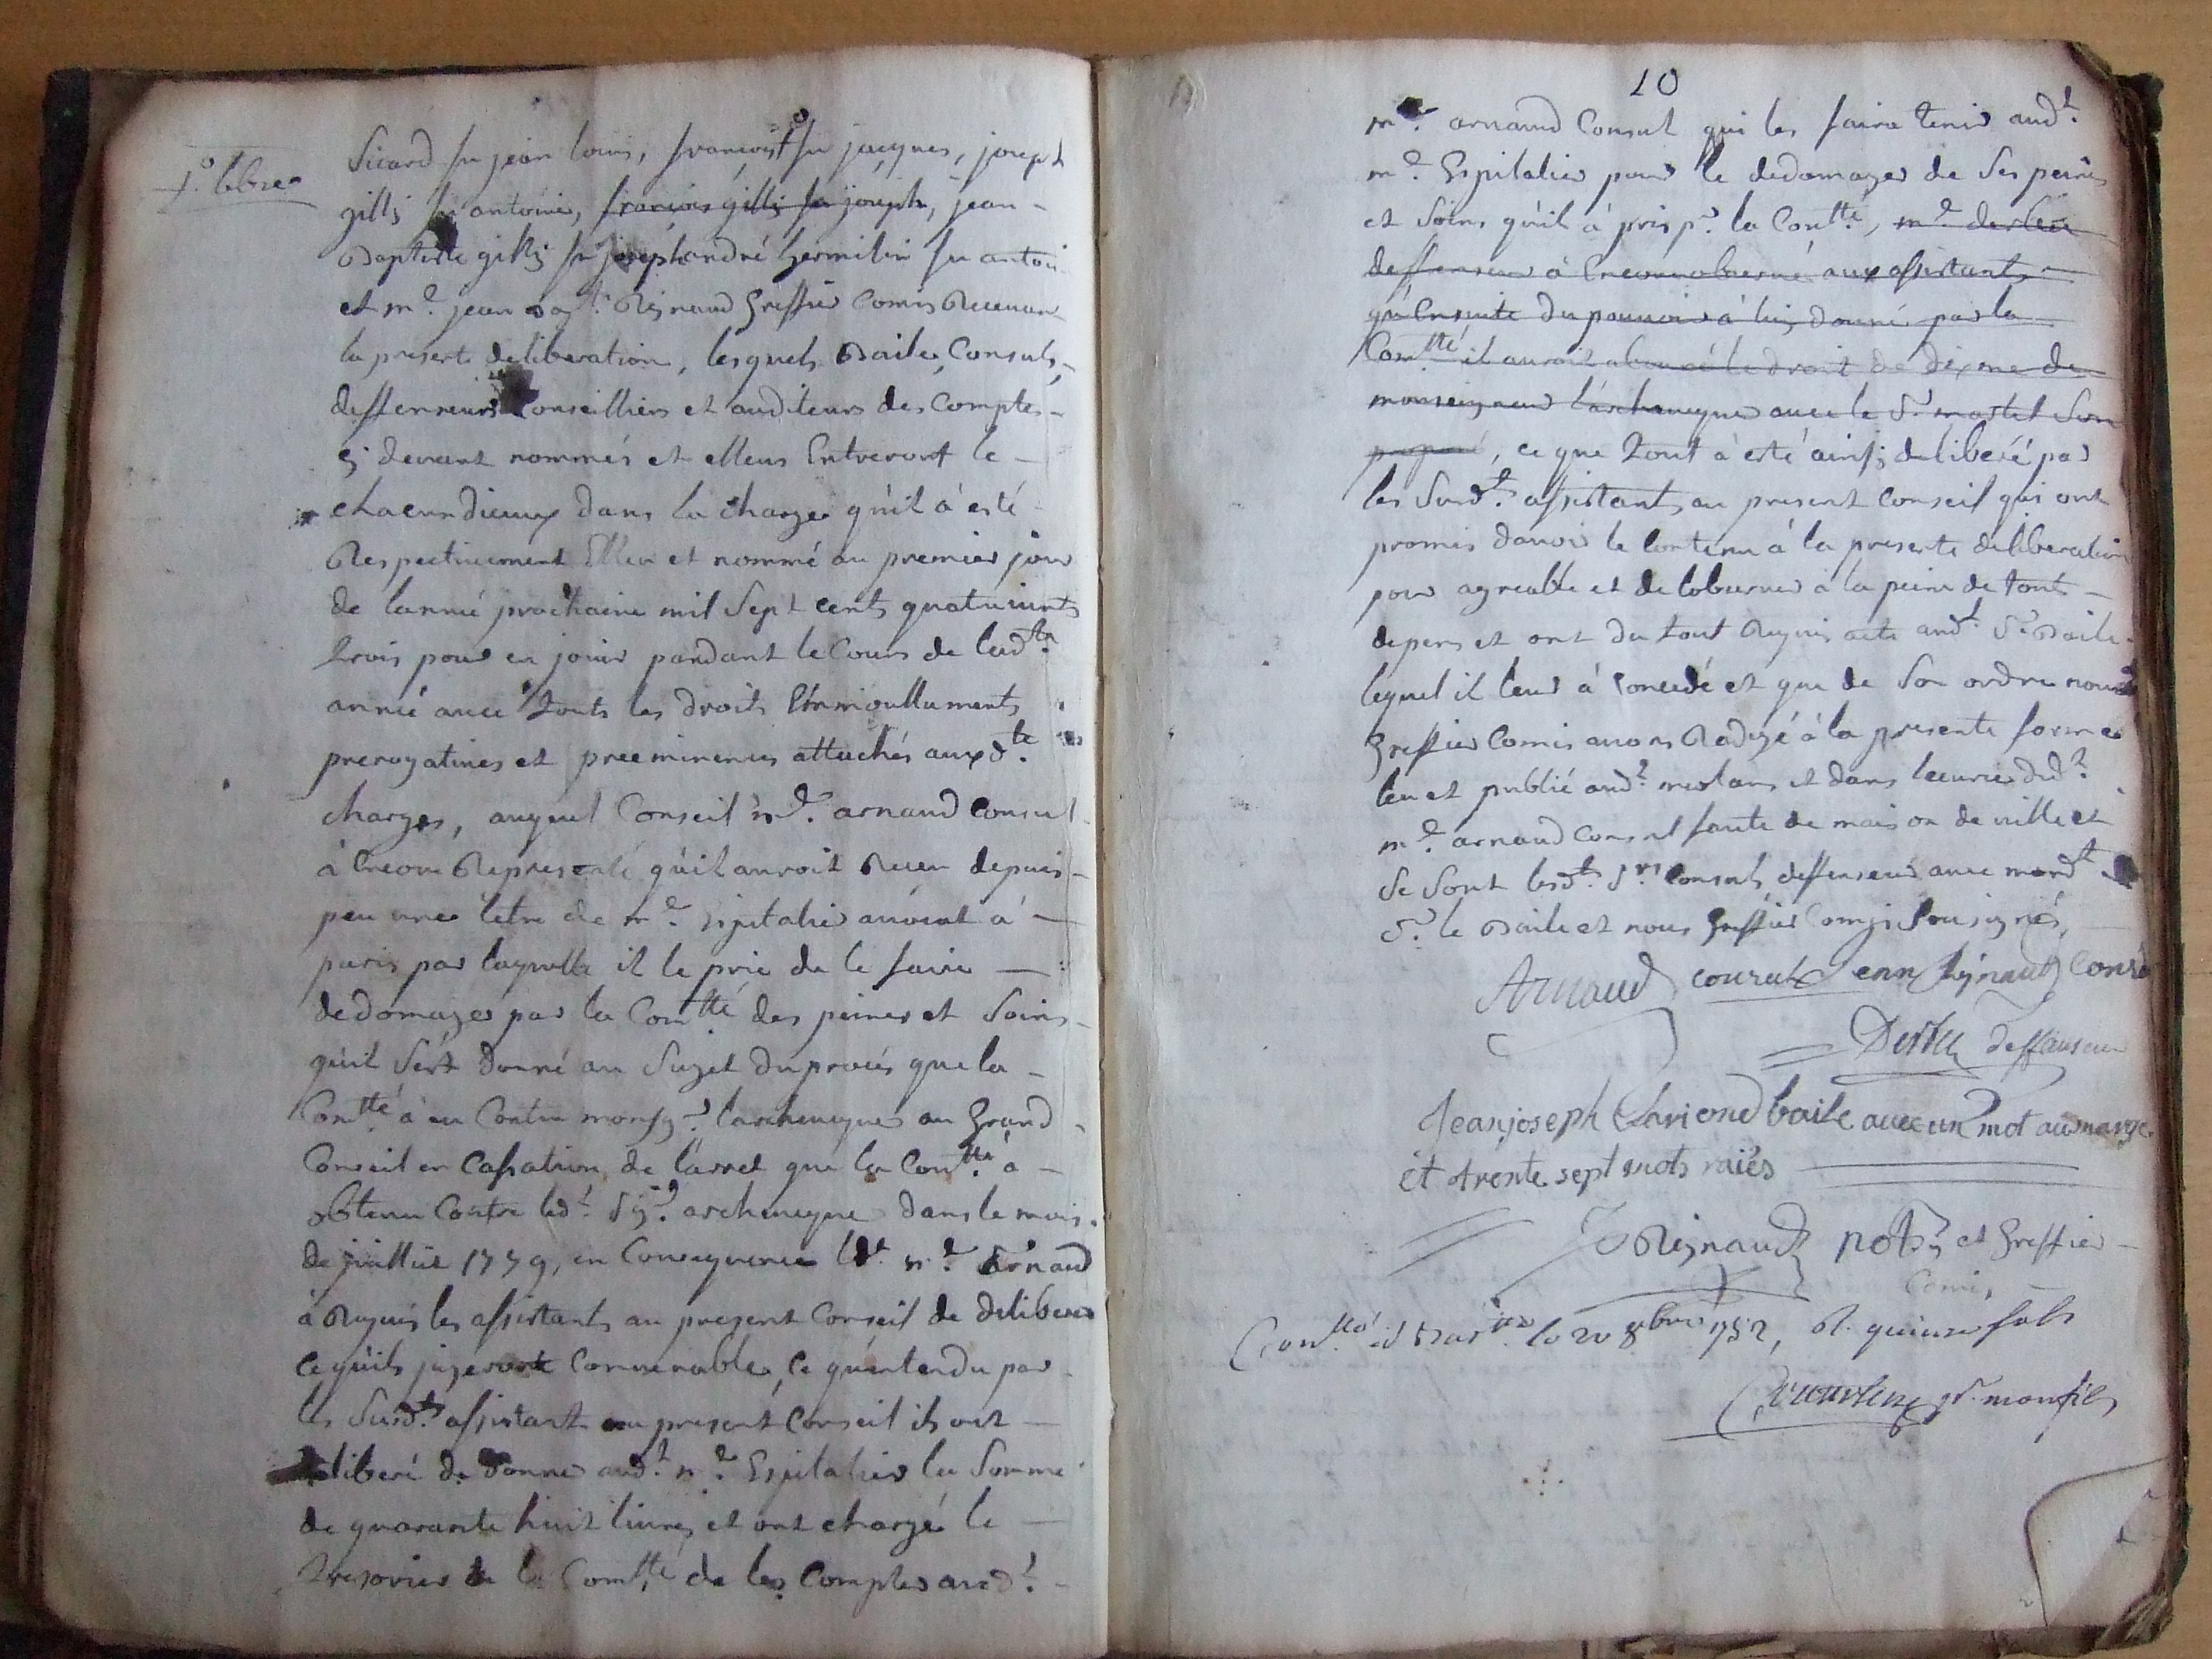 Sicard fu jean louis, françoist fu jacques, joseph
gilly fu antoine, françois gilly fu joseph, jean -
Baptiste gilly fu joseph andré hermelin fu antoi
et me. jean Bapt. Reynaud Greffier Comis Recevan
la presente deliberation, lesquels Baile, Consuls,
deffenseurs Conseilliers et auditeurs des Comptes
cy devant nommés et elleus Entreront le
chacun dieux dans la charge qu'il à esté
Respectivement Elleu et nommé au premier jour
de lannée prochaine mil Sept cents quatrevints
trois pour en jouir pandant le Cours de ladte.
année avec touts les droits Emmoulluments
prerogatives et preeminences attachés auxdte.
charges, auquel Conseil me. arnaud Consul
à Encore Representé qu'il auroit Receu depuis
peu une letre de me. Espitalier avocat à
paris par laquelle il le prie de le faire
dedomager par la Comtté des peines et Soins
qu'il s'est donné au Sujet du procès que la
Comtté à eu Contre monsgr. larcheveque au Grand
Conseil en Cassation de l'arret que la Comtté à
obtenu Contre ledt. Sgr. archeveque dans le mois
de juilliet 1779, en Consequence ledt. me. Arnaud
à Requis les assistants au present Conseil de deliberer
ce qu'ils jugeront Convenable, Ce qu'entendu par
les Susdts. assistants au present Conseil ils ont
deliberé de donner audt. me. Espitalier la Somme
de quarante huit livres et ont chargé le
Tresorier de la Comtté de les Compter audt.
10
me. arnaud Consul qui les faira tenir audt.
me. Espitalier pour le dedomager de Ses peines
et Soins qu'il à pris pr. la Comtté, me.
deffenseur à Encore observé aux assistants
qu'Ensuite du pouvoir à luy donné par la
Comtté il auroit abonné le droit de dixme de
monseigneur l'archeveque avec le Sr. martel Son
preposé, ce que tout à esté ainsy deliberé par
les Susdts. assistants au present Conseil qui ont
promis davoir le Contenu à la presente deliberation
pour agreable et de lobserver à la peine de touts
depens et ont du tout Requis acte audt. Sr. Baile
lequel il leur à Concedé et que de Son ordre nous
Greffier Comis avons Redigé à la presente forme
leu et publié audt. meolans et dans lecurie dudt.
me. arnaud Consul faute de maison de ville et
Se Sont lesdts. Srs. Consuls, deffenseur avec mondt.
Sr. le Baile et nous Greffier Comis Sousignés,
Arnaud consul enn Reynaud Consul
deffanseur
Jean joseph baile avec un mot au marge
et trente sept mots raiés
Reynaud notre. et Greffier
Comis
Conttô. le 20 8bre 1782, R. quinze sols
pr. mon fils